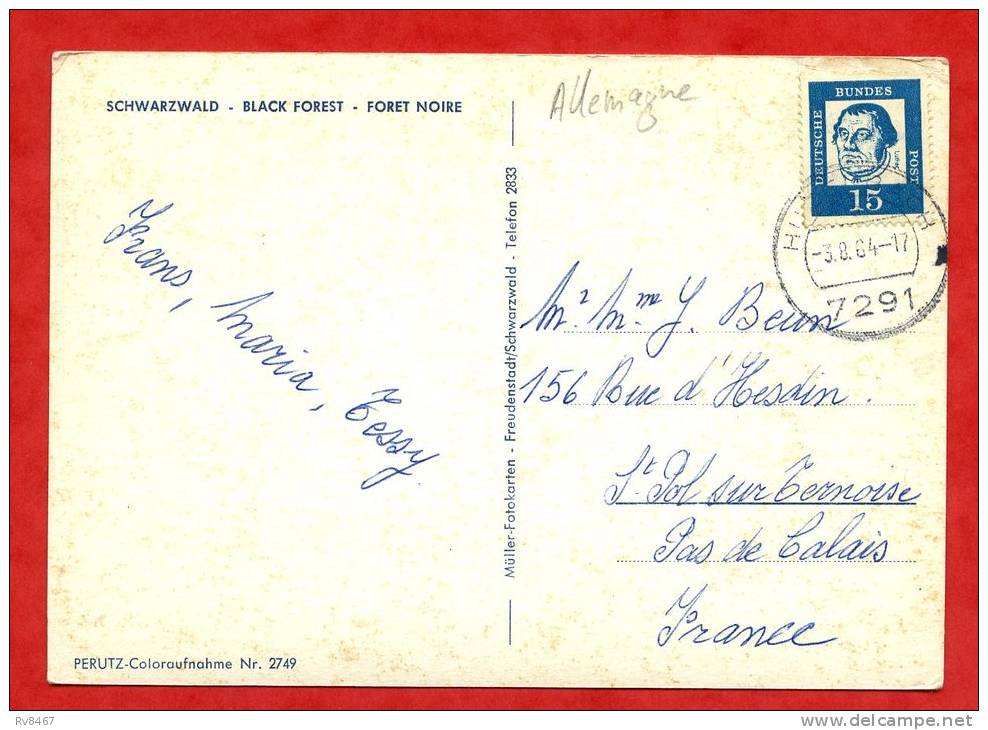 SCHWARZWALD - BLACK FOREST - FORET NOIRE
Allemagne
DEUTSCHE
BUNDES
POST
15
-3.8.64-17
7291
Frans, Maria, Tessy.
Müller-Fotokarten - Freudenstadt/Schwarzwald - Telefon 2833
Mr. Mme J. Beun
156 Rue d'Hesdin.
St Pol sur Ternoise
Pas de Calais
France
PERUTZ-Coloraufnahme Nr. 2749
Rv8467
delcampe.net